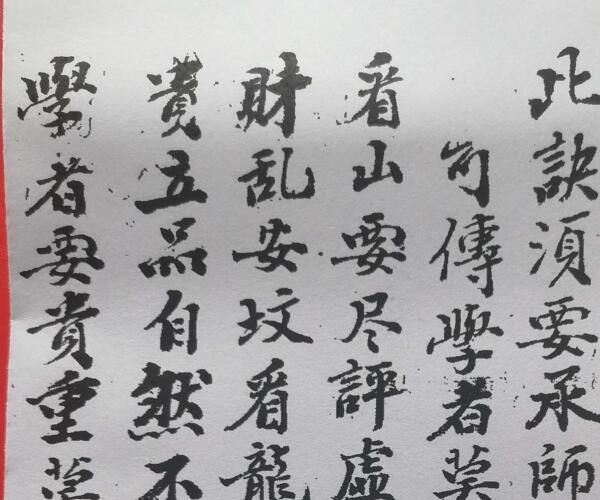 此訣須要承師
句傳學者莫
看山要尽評虛
財乱安坟看龍
貴立品自然不
學者要貴重莫